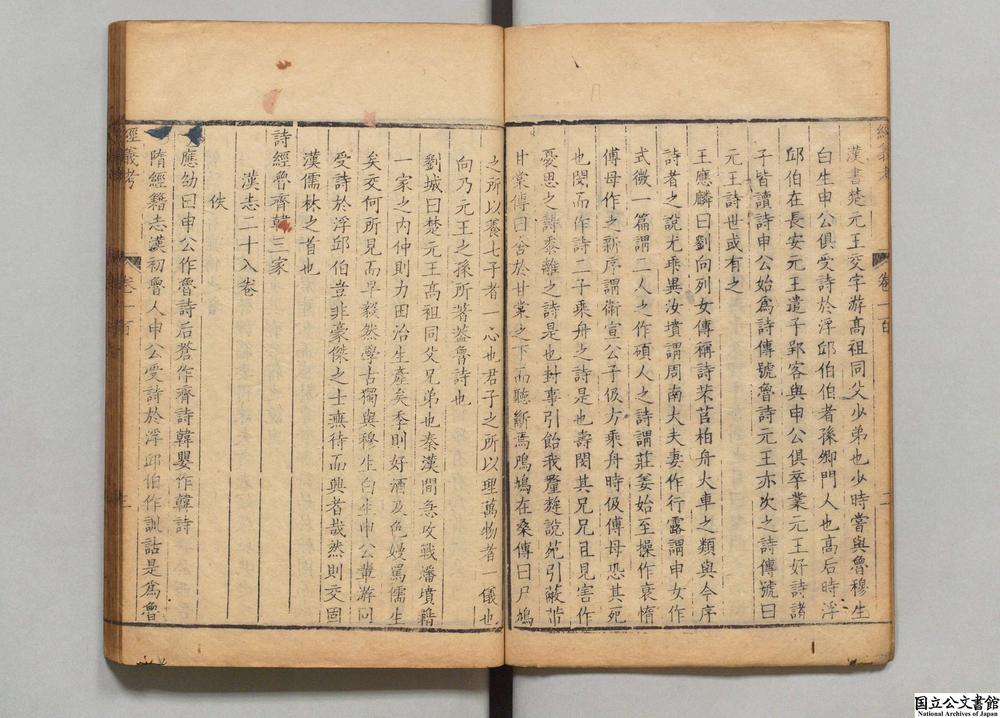 漢書楚元王交字游高祖同父少弟也少時嘗與魯穆生
白生申公俱受詩於浮邱伯伯者孫卿門人也高后時浮
邱伯在長安元王遣子郢客與申公俱卒業元王好詩諸
子皆讀詩申公始爲詩傳號魯詩元王亦次之詩傳號曰
元王詩世或有之
王應麟曰劉向列女傳稱詩芣苢柏舟大車之類與今序
詩者之說尤乖異汝墳謂周南大夫妻作行露謂申女作
式微一篇謂二人之作碩人之詩謂莊姜始至操作衰惰
傅母作之新序謂衛宣公子伋方乘舟時伋傅母恐其死
也閔而作詩二子乘舟之詩是也壽閔其兄兄且見害作
憂思之詩黍離之詩是也封事引飴我釐麰說苑引蔽芾
甘棠傳曰舍於甘棠之下而聽斷焉鳲鳩在桑傳曰尸鳩
之所以養七子者一心也君子之所以理萬物者一儀也
向乃元王之孫所著蓋魯詩也
劉城曰楚元王高祖同父兄弟也秦漢閒急攻戰潘墳籍
一家之內仲則力田治生產矣季則好酒及色嫚罵儒生
矣交何所見而早毅然學古獨與穆生白生申公輩游同
受詩於浮邱伯豈非豪傑之士無待而興者哉然則交固
漢儒林之首也
詩經魯齊韓三家
漢志二十八卷
佚
應劭曰申公作魯詩后蒼作齊詩韓嬰作韓詩
隋經籍志漢初魯人申公受詩於浮邱伯作訓詁是爲魯
經義考
卷一百
卷一百
二
國立公文書館
National Archives of Japan